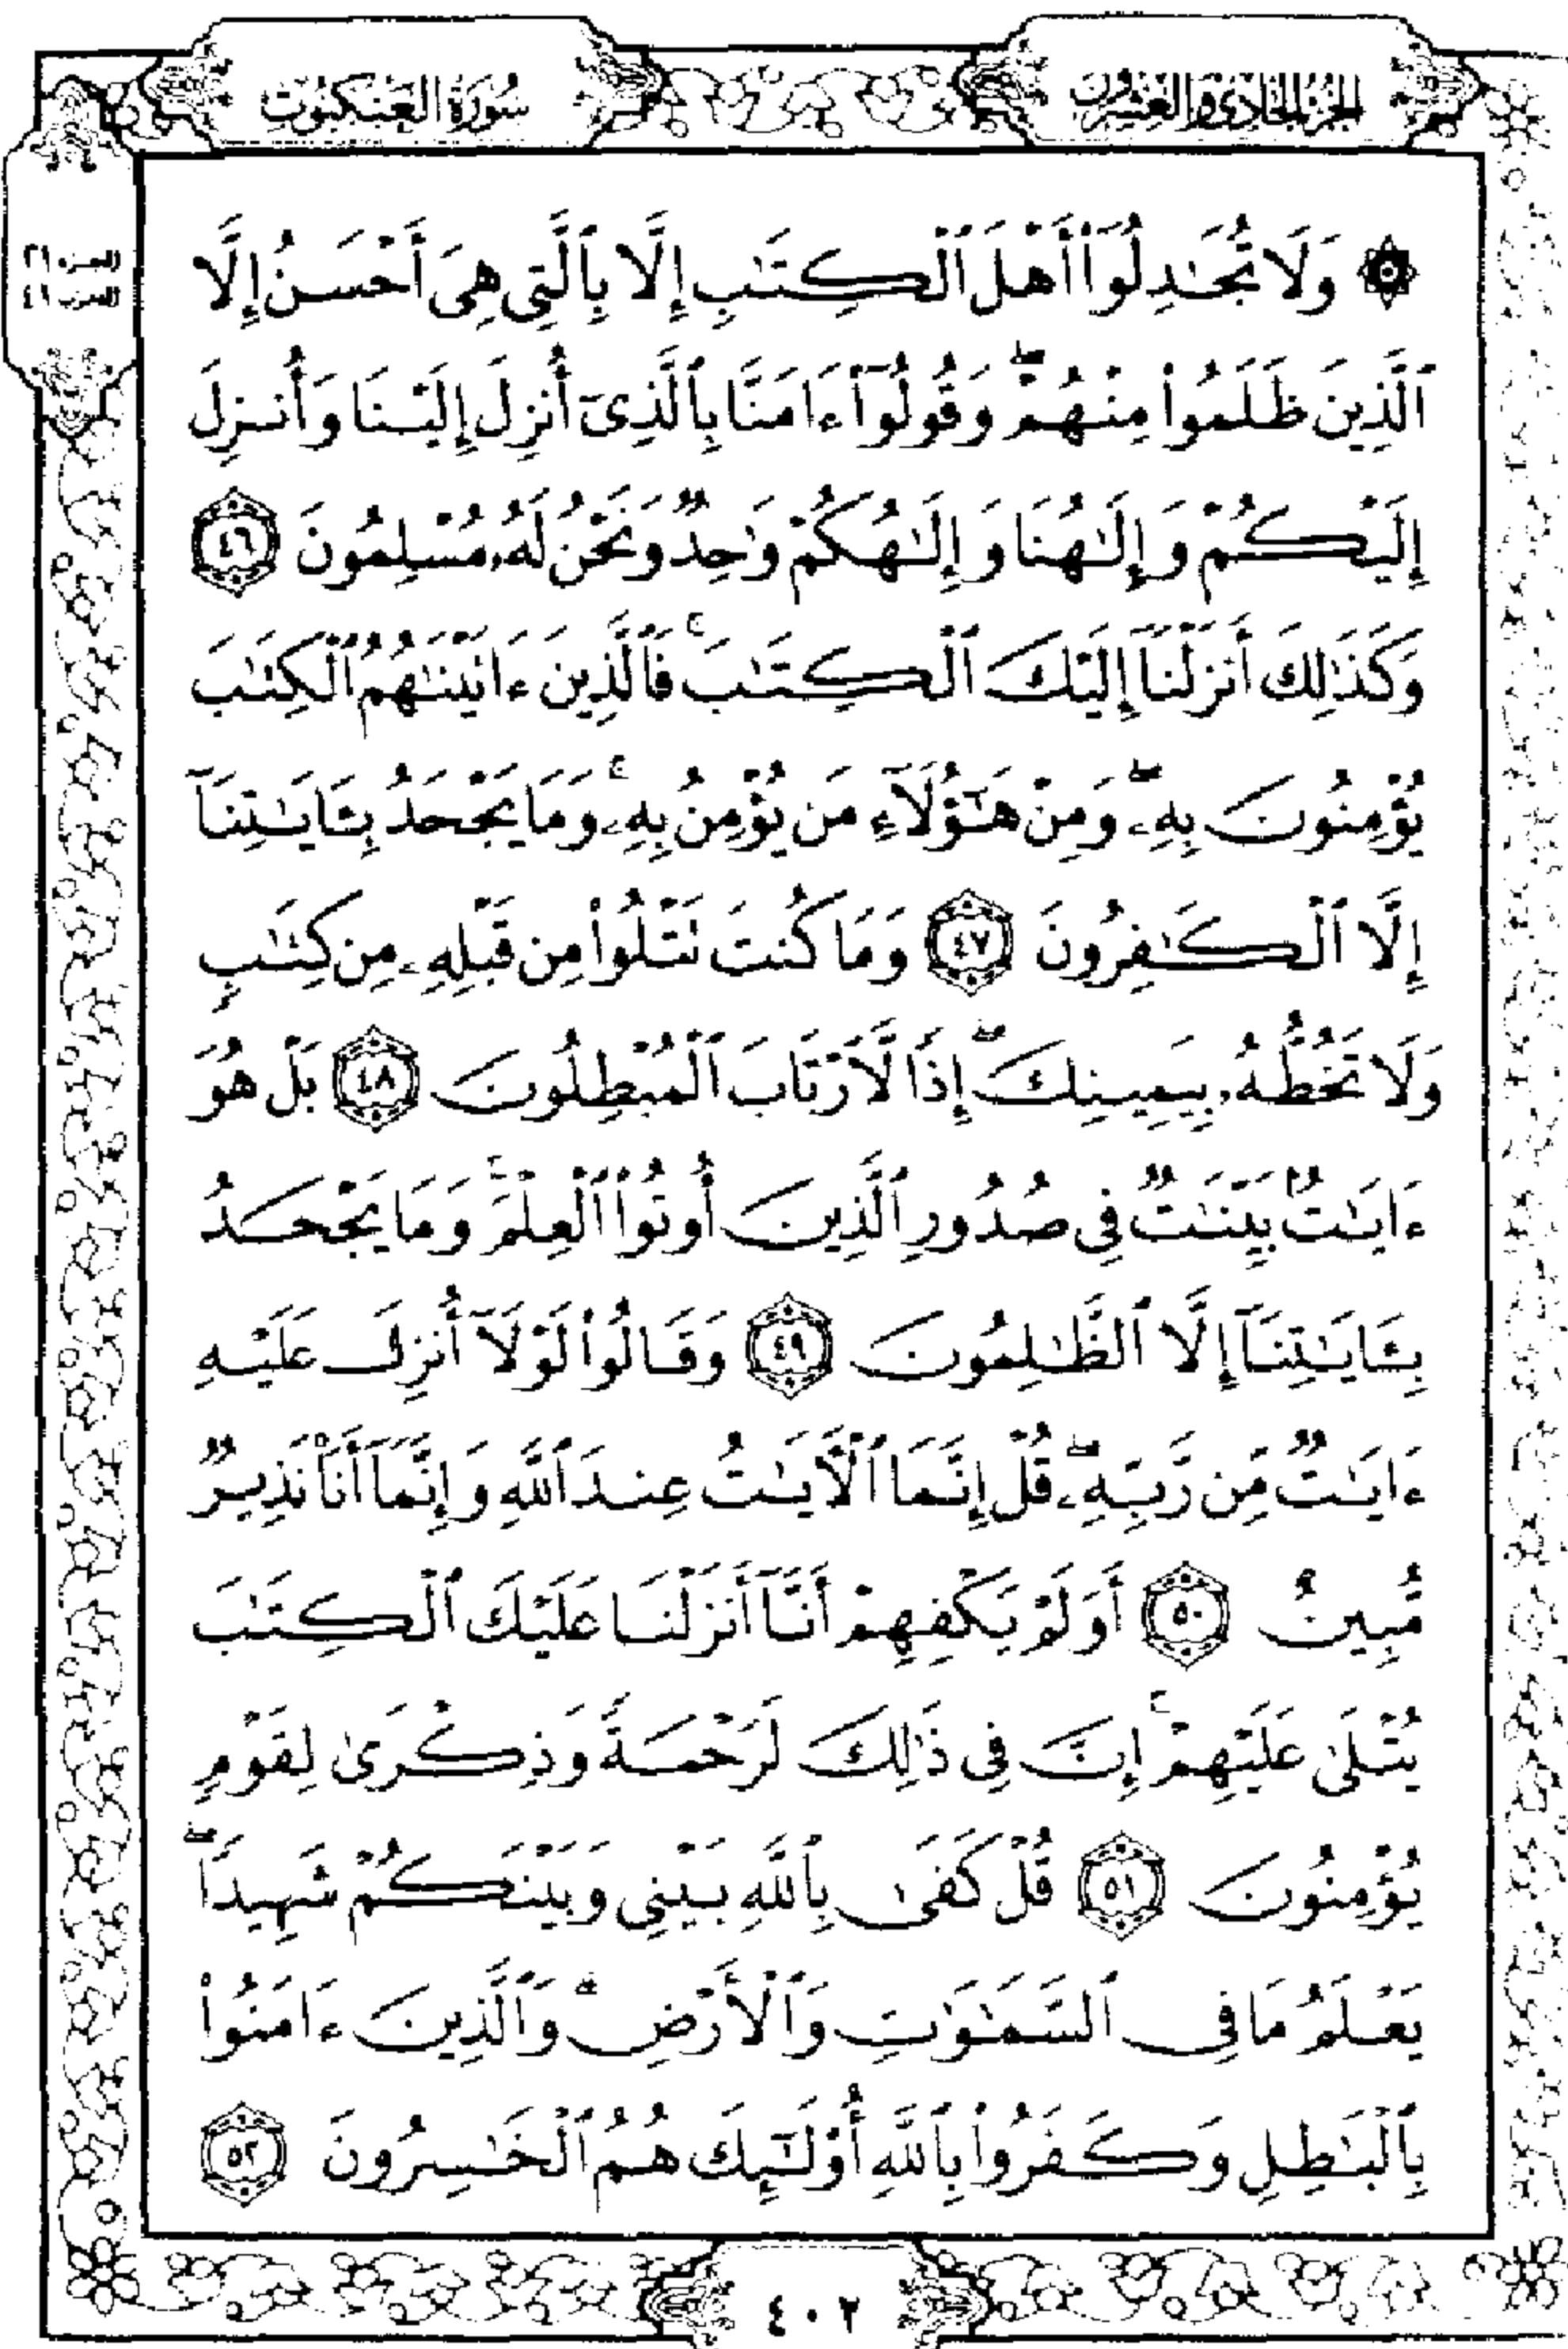 الجزء الحادي والعشرون
سورة العنكبوت
۞ وَلَا تُجَٰدِلُوٓا۟ أَهْلَ ٱلْكِتَٰبِ إِلَّا بِٱلَّتِى هِىَ أَحْسَنُ إِلَّا
ٱلَّذِينَ ظَلَمُوا۟ مِنْهُمْ ۖ وَقُولُوٓا۟ ءَامَنَّا بِٱلَّذِىٓ أُنزِلَ إِلَيْنَا وَأُنزِلَ
إِلَيْكُمْ وَإِلَٰهُنَا وَإِلَٰهُكُمْ وَٰحِدٌ وَنَحْنُ لَهُۥ مُسْلِمُونَ ٤٦
وَكَذَٰلِكَ أَنزَلْنَآ إِلَيْكَ ٱلْكِتَٰبَ ۚ فَٱلَّذِينَ ءَاتَيْنَٰهُمُ ٱلْكِتَٰبَ
يُؤْمِنُونَ بِهِۦ ۖ وَمِنْ هَٰٓؤُلَآءِ مَن يُؤْمِنُ بِهِۦ ۚ وَمَا يَجْحَدُ بِـَٔايَٰتِنَآ
إِلَّا ٱلْكَٰفِرُونَ ٤٧ وَمَا كُنتَ تَتْلُوا۟ مِن قَبْلِهِۦ مِن كِتَٰبٍ
وَلَا تَخُطُّهُۥ بِيَمِينِكَ ۖ إِذًا لَّٱرْتَابَ ٱلْمُبْطِلُونَ ٤٨ بَلْ هُوَ
ءَايَٰتٌۢ بَيِّنَٰتٌ فِى صُدُورِ ٱلَّذِينَ أُوتُوا۟ ٱلْعِلْمَ ۚ وَمَا يَجْحَدُ
بِـَٔايَٰتِنَآ إِلَّا ٱلظَّٰلِمُونَ ٤٩ وَقَالُوا۟ لَوْلَآ أُنزِلَ عَلَيْهِ
ءَايَٰتٌ مِّن رَّبِّهِۦ ۖ قُلْ إِنَّمَا ٱلْـَٔايَٰتُ عِندَ ٱللَّهِ وَإِنَّمَآ أَنَا۠ نَذِيرٌ
مُّبِينٌ ٥٠ أَوَلَمْ يَكْفِهِمْ أَنَّآ أَنزَلْنَا عَلَيْكَ ٱلْكِتَٰبَ
يُتْلَىٰ عَلَيْهِمْ ۚ إِنَّ فِى ذَٰلِكَ لَرَحْمَةً وَذِكْرَىٰ لِقَوْمٍ
يُؤْمِنُونَ ٥١ قُلْ كَفَىٰ بِٱللَّهِ بَيْنِى وَبَيْنَكُمْ شَهِيدًا ۖ
يَعْلَمُ مَا فِى ٱلسَّمَٰوَٰتِ وَٱلْأَرْضِ ۗ وَٱلَّذِينَ ءَامَنُوا۟
بِٱلْبَٰطِلِ وَكَفَرُوا۟ بِٱللَّهِ أُو۟لَٰٓئِكَ هُمُ ٱلْخَٰسِرُونَ ٥٢
٤٠٢